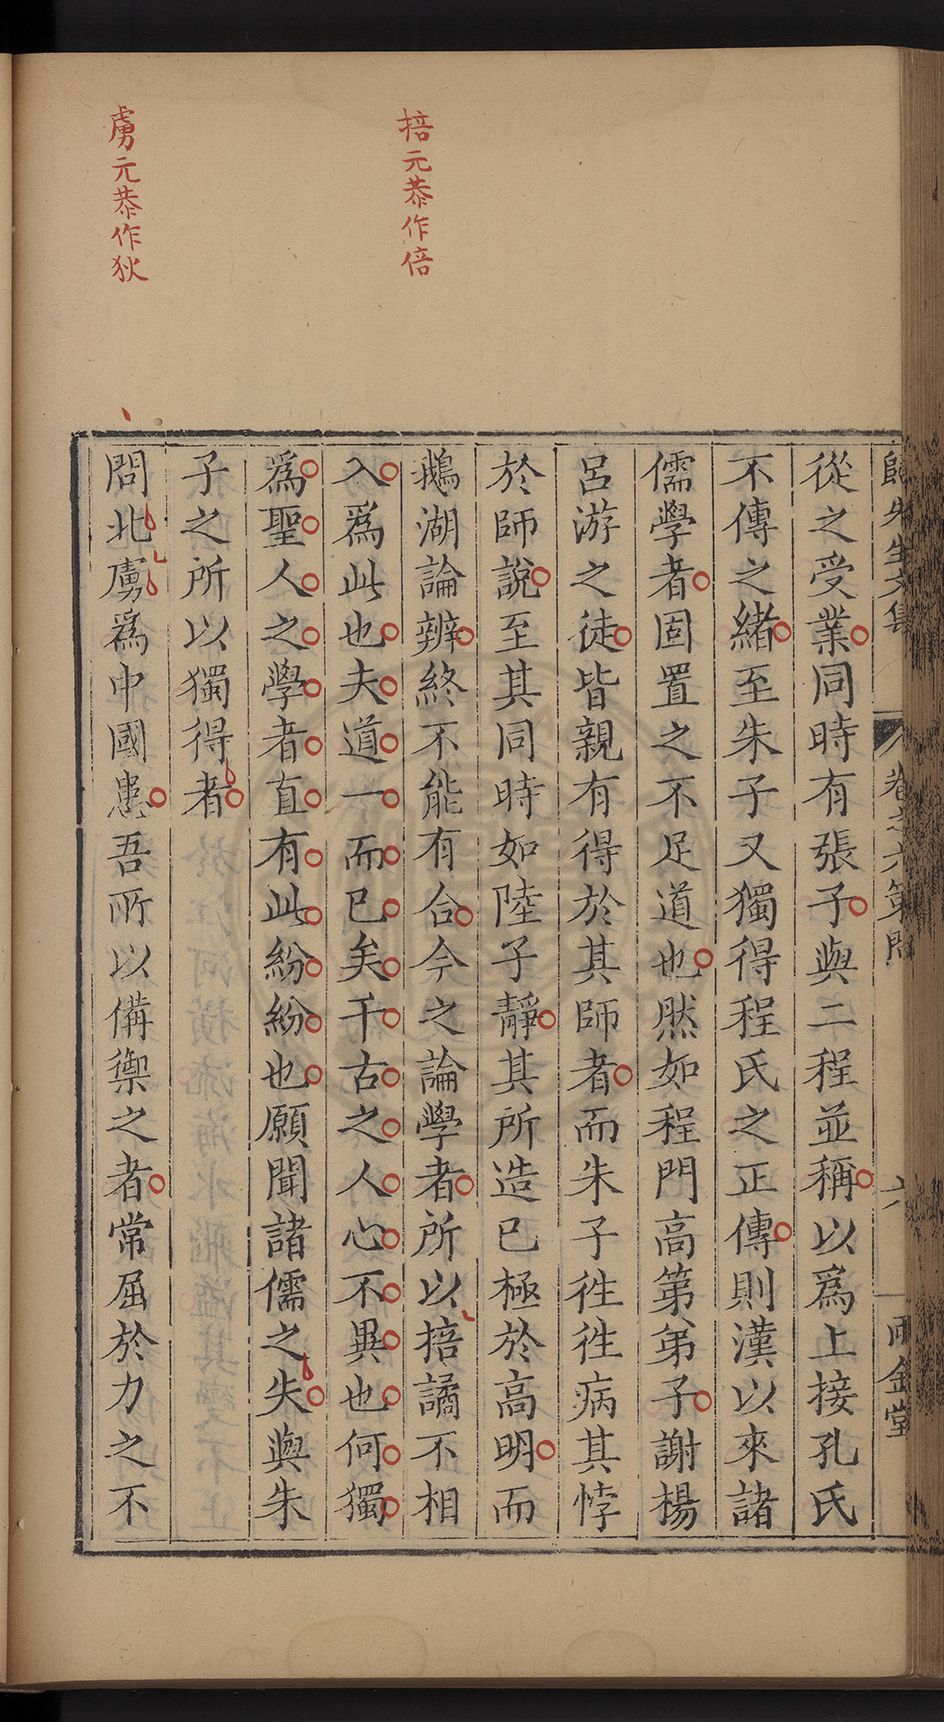 掊元恭作倍
虜元恭作狄
歸先生文集
卷之六策問
六
雨金堂
從之受業同時有張子與二程並稱以爲上接孔氏
不傳之緒至朱子又獨得程氏之正傳則漢以來諸
儒學者固置之不足道也然如程門高第弟子謝楊
呂游之徒皆親有得於其師者而朱子徃徃病其悖
於師說至其同時如陸子靜其所造已極於高明而
鵝湖論辨終不能有合今之論學者所以掊譎不相
入爲此也夫道一而已矣千古之人心不異也何獨
爲聖人之學者直有此紛紛也願聞諸儒之失與朱
子之所以獨得者
問北虜爲中國患吾所以備禦之者常屈於力之不